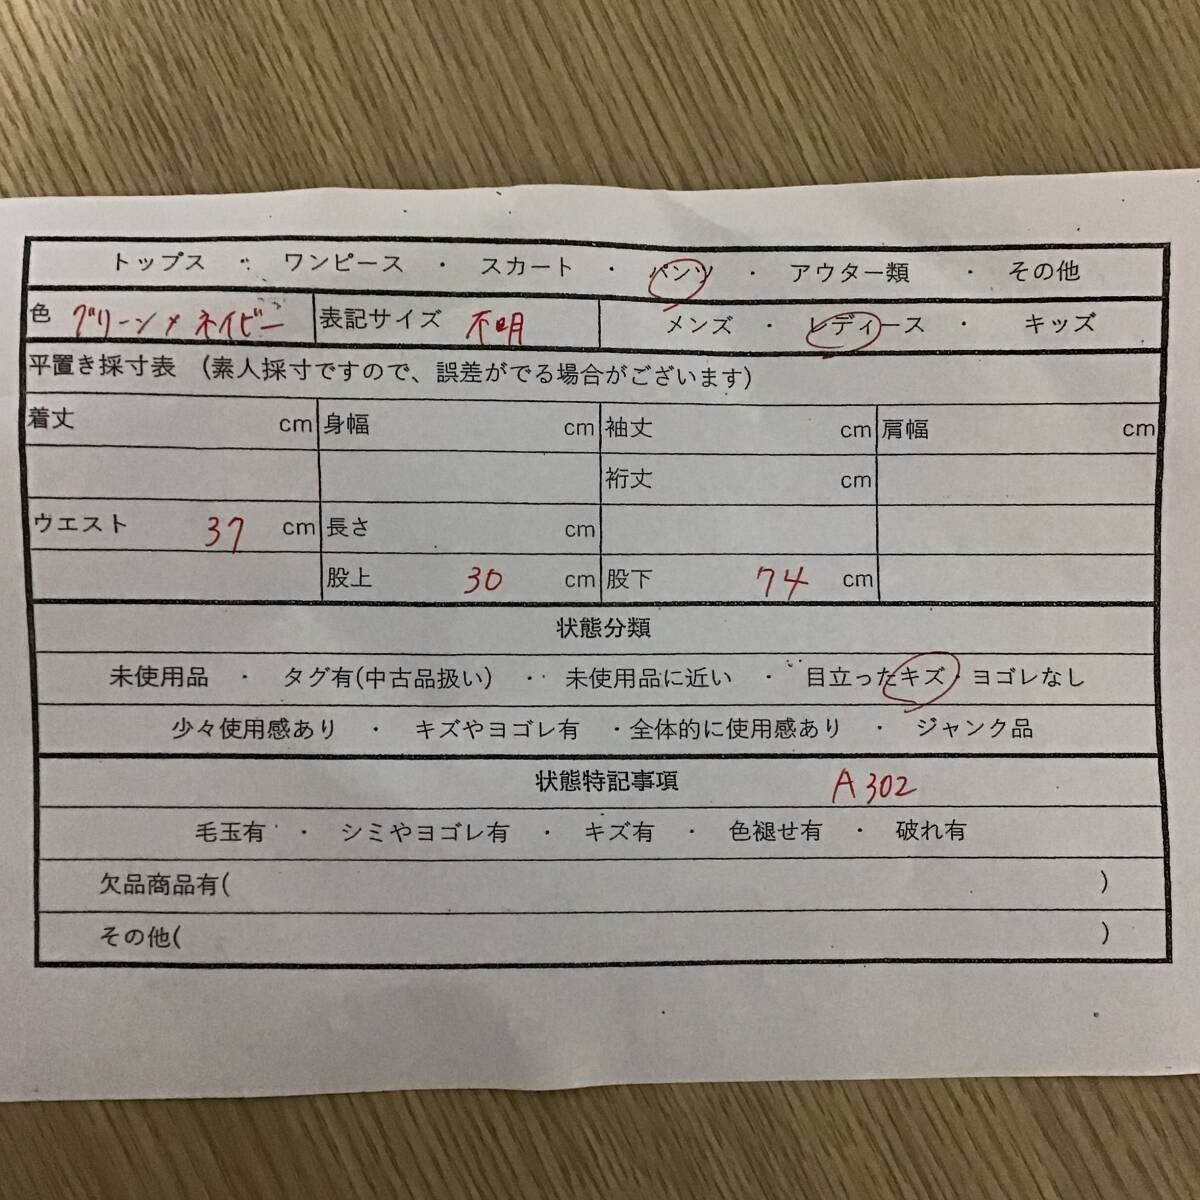 トップス ・ ワンピース ・ スカート ・ パンツ ・ アウター類 ・ その他
色 グリーン×ネイビー 表記サイズ 不明 メンズ ・ レディース ・ キッズ
平置き採寸表 (素人採寸ですので、誤差がでる場合がございます)
着丈 cm 身幅 cm 袖丈 cm 肩幅 cm
裄丈 cm
ウエスト 37 cm 長さ cm
股上 30 cm 股下 74 cm
状態分類
未使用品 ・ タグ有(中古品扱い) ・ 未使用品に近い ・ 目立ったキズ・ヨゴレなし
少々使用感あり ・ キズやヨゴレ有 ・全体的に使用感あり ・ ジャンク品
状態特記事項 A302
毛玉有 ・ シミやヨゴレ有 ・ キズ有 ・ 色褪せ有 ・ 破れ有
欠品商品有( )
その他( )